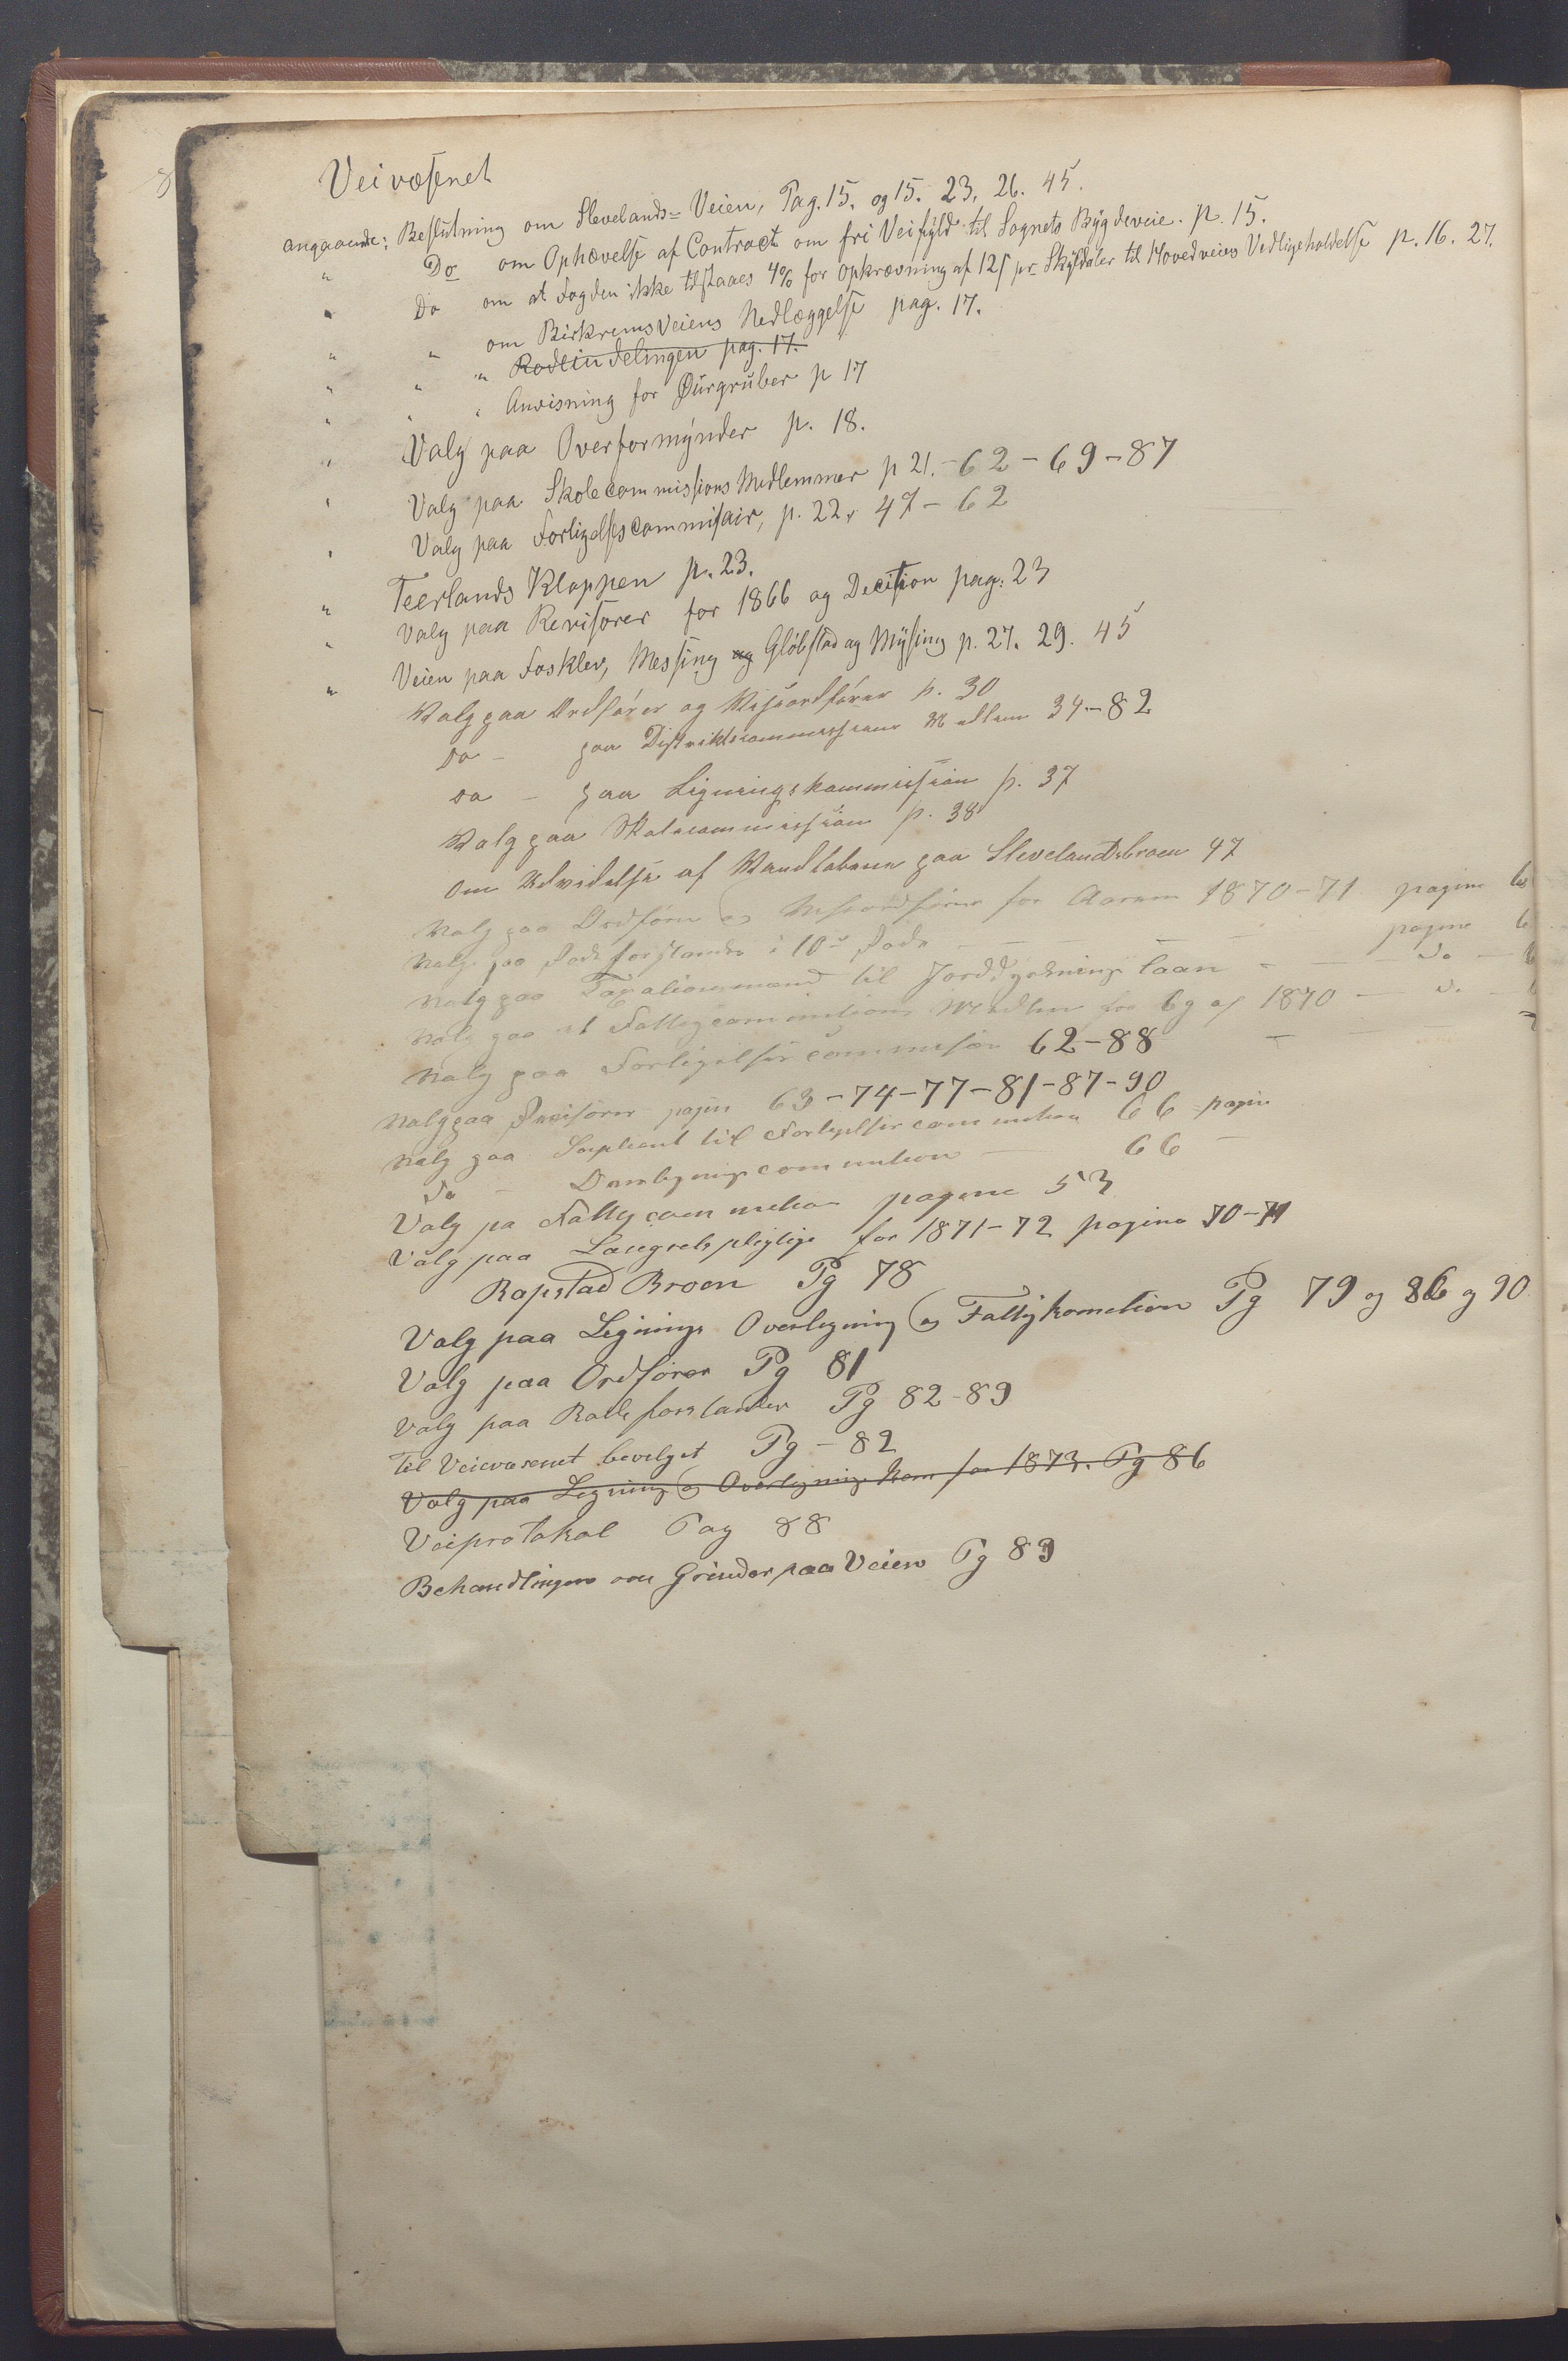 Veivæsenet
angaaende: Beslutning om Slevelands=Veien, Pag. 15. og 15. 23. 26. 45.
" Do om Ophævelse af Contract om fri Veifyld til Sognets Bygdeveie. p. 15.
" Do om at Fogden ikke tilstaaes 4% for Opkrævning af 12 s pr. Skylddaler til Hovedveies Vedligeholdelse p. 16. 27.
" " om BirkremsVeiens Nedlæggelse pag. 17.
" " " Rodeinddelingen pag. 17.
" " " Anvisning for Øurgruber p 17
" Valg paa Overformynder p. 18.
" Valg paa Skolecommissions Medlemmer p 21. - 62 - 69 - 87
" Valg paa Forligelsescommisair, p. 22. 47 - 62
" Teerlands Kloppen p. 23.
" Valg paa Revisorer for 1866 og Decision pag. 23
" Veien paa Fosklev, Messing og Gløbstad og Mysing p. 27. 29. 45
Valg paa Ordfører og Viseordfører p. 30
Do - paa Distriktscommissions Medlem 34 - 82
Do - paa Ligningskommission p. 37
Valg paa Skolecommission p. 38
Om Udvidelse af Vandløbene paa Slevelandsbroen 47
Valg paa Ordfører og Viseordfører for Aarene 1870-71 pagina
Valg paa Rodeforstander i 10de Rode pagina
Valg paa Taxationsmænd til Jorddyrknings laan - Do
Valg paa et Fattigcommissions Medlem for 69 og 1870 - Do
Valg paa Forligelsescommissær 62-88
Valg paa Revisorer pagin 63-74-77-81-87-90
Valg paa Supleant til Forligelsescommission 66 pagin
Do - Overligningscommission - 66 -
Valg pa Fattigcommission pagina 53
Valg paa Laugretspligtige for 1871-72 pagina 70-71
Rapstad Broen Pg 78
Valg paa Lignings Overligning og Fattigkomission Pg 79 og 86 og 90
Valg paa Ordfører Pg 81
Valg paa Rodeforstander Pg 82-89
Til Veivæsenet bevilget Pg - 82
Valg paa Ligning og Overlignings Kom for 1873. Pg 86
Veiprotokol Pag 88
Behandlingen om Grinder paa Veien Pg 89